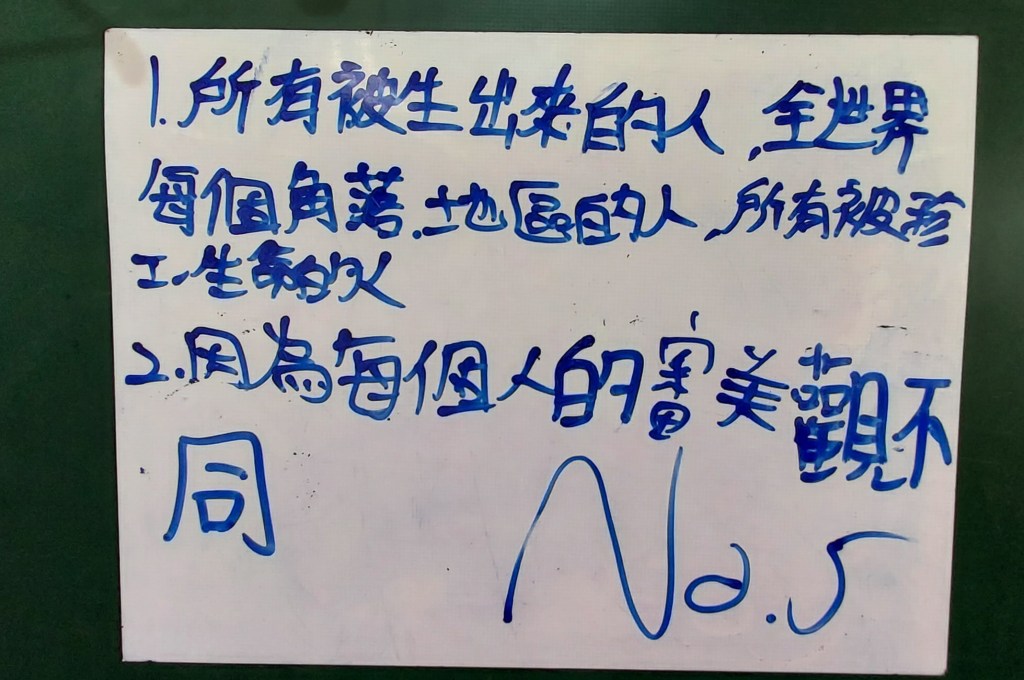 1.所有被生出來的人,全世界
每個角落.土地區的人,所有被孩
工.生命的人
2.因為每個人的審美觀不
同
No.5